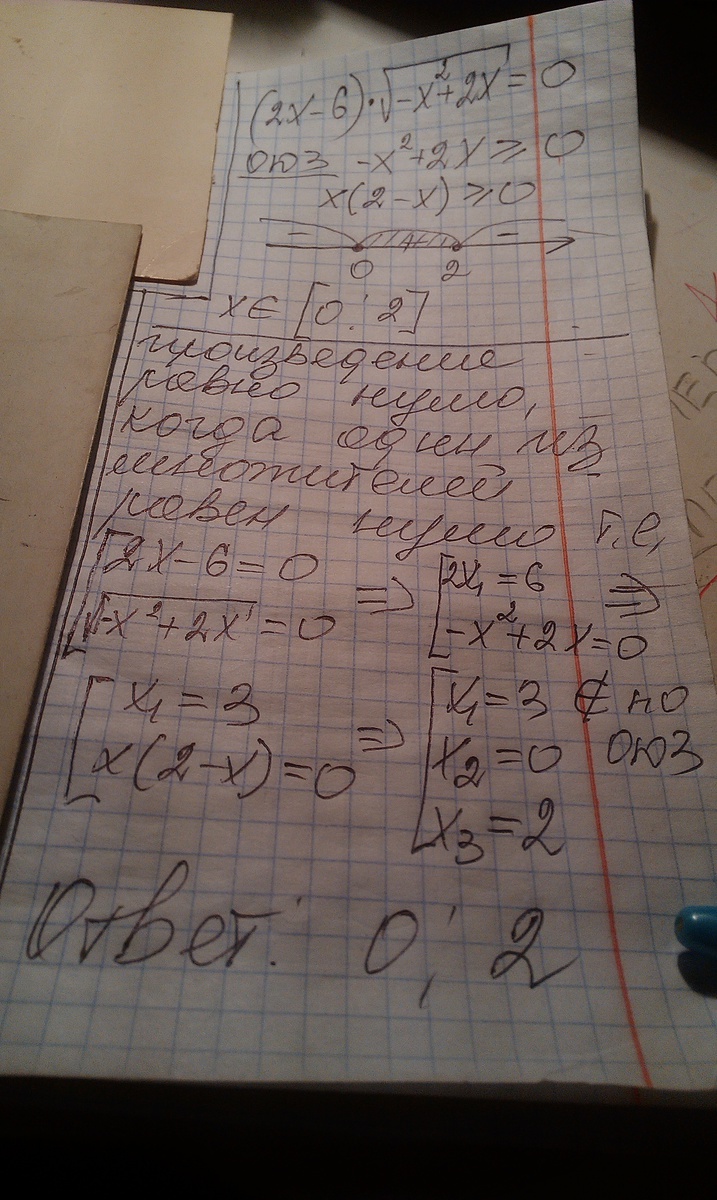 (2x-6)·√(-x²+2x) = 0
ОЮЗ -x²+2x ≥ 0
x(2-x) ≥ 0
- + -
0 2
x ∈ [0; 2]
произведение
равно нулю,
когда один из
множителей
равен нулю т.е.
[2x-6=0 => [2x₁=6 =>
[√(-x²+2x)=0 [-x²+2x=0
[x₁=3 => [x₁=3 ∉ по
x(2-x)=0 x₂=0 ОЮЗ
x₃=2
Ответ: 0; 2